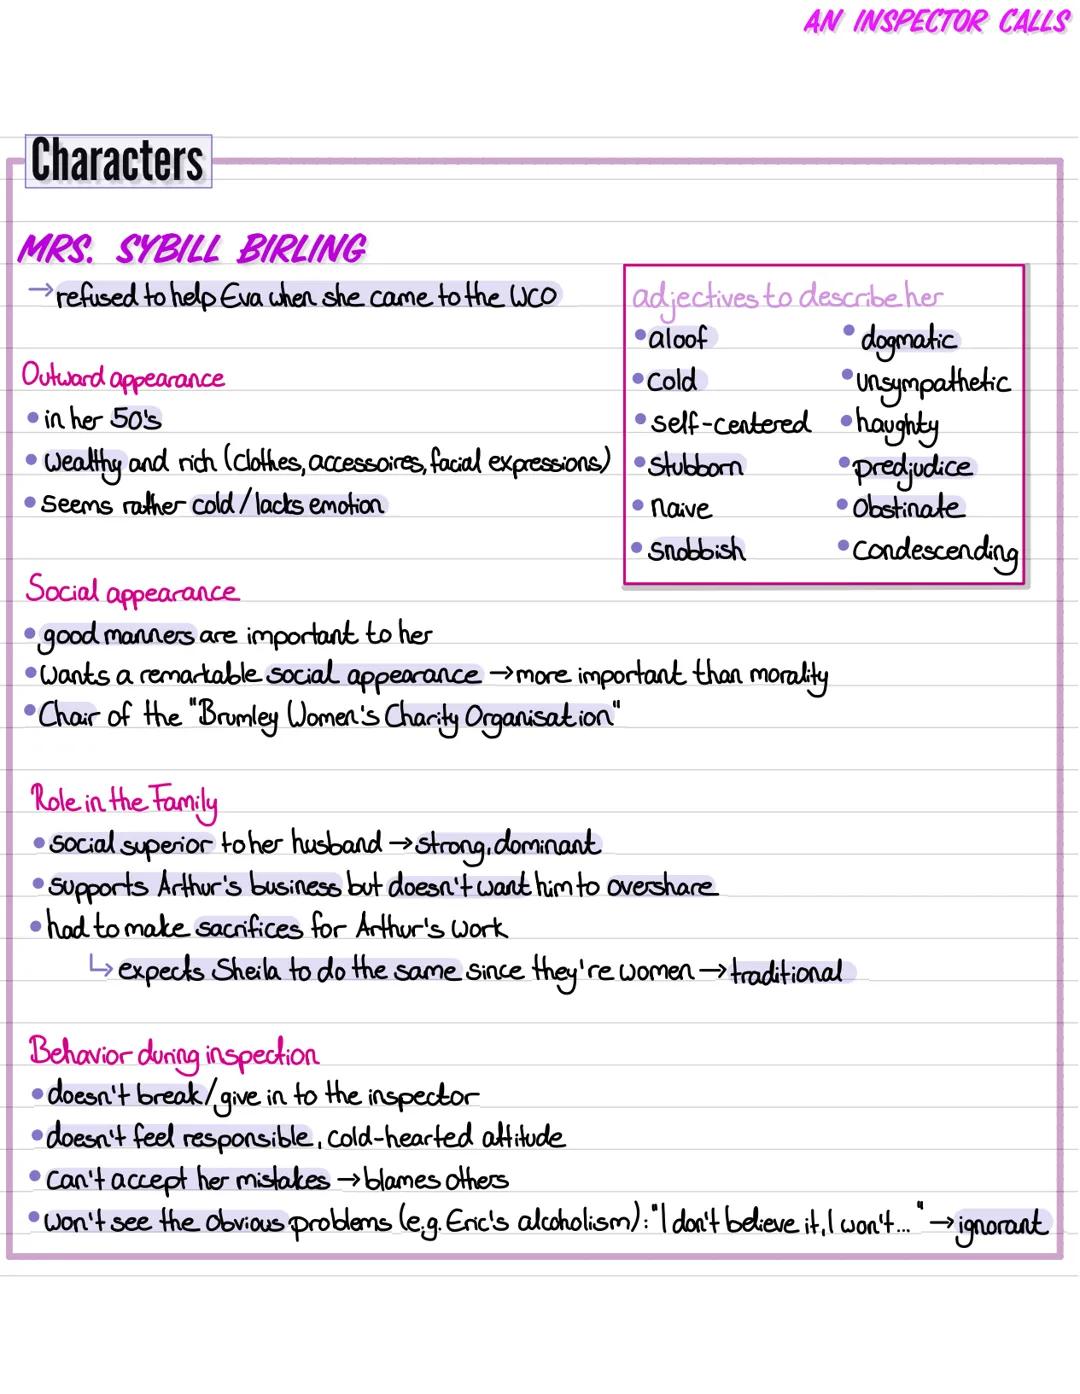 AN INSPECTOR CALLS
Characters
MRS. SYBILL BIRLING
→ refused to help Eva when she came to the WCO
adjectives to describe her
• aloof
• cold
• self-centered
• stubborn
• naive
• snobbish
• dogmatic
• unsympathetic
• haughty
• predjudice
• obstinate
• condescending
Outward appearance
• in her 50's
• wealthy and rich (clothes, accessoires, facial expressions)
• seems rather cold/lacks emotion
Social appearance
• good manners are important to her
• wants a remarkable social appearance → more important than morality
• Chair of the "Brumley Women's Charity Organisation"
Role in the Family
• social superior to her husband → strong, dominant
• supports Arthur's business but doesn't want him to overshare
• had to make sacrifices for Arthur's work
↳ expects Sheila to do the same since they're women → traditional
Behavior during inspection
• doesn't break/give in to the inspector
• doesn't feel responsible, cold-hearted attitude
• can't accept her mistakes → blames others
• won't see the obvious problems (e.g. Eric's alcoholism): "I don't believe it, I won't..." → ignorant